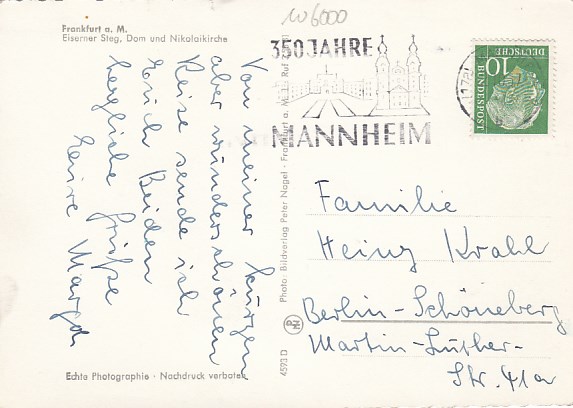 W6000
Frankfurt a. M.
Eiserner Steg, Dom und Nikolaikirche
350 JAHRE
MANNHEIM
10
DEUTSCHE
BUNDESPOST
Von meiner kurzen
aber wunderschönen
Reise sende ich
Euch Beiden
herzliche Grüße
Eure Margot
Photo: Bildverlag Peter Nagel · Frankfurt a. M. 1 · Ruf
4593 D
PN
Familie
Heinz Krahl
Berlin-Schöneberg
Martin-Luther-
Str. 41a
Echte Photographie · Nachdruck verboten